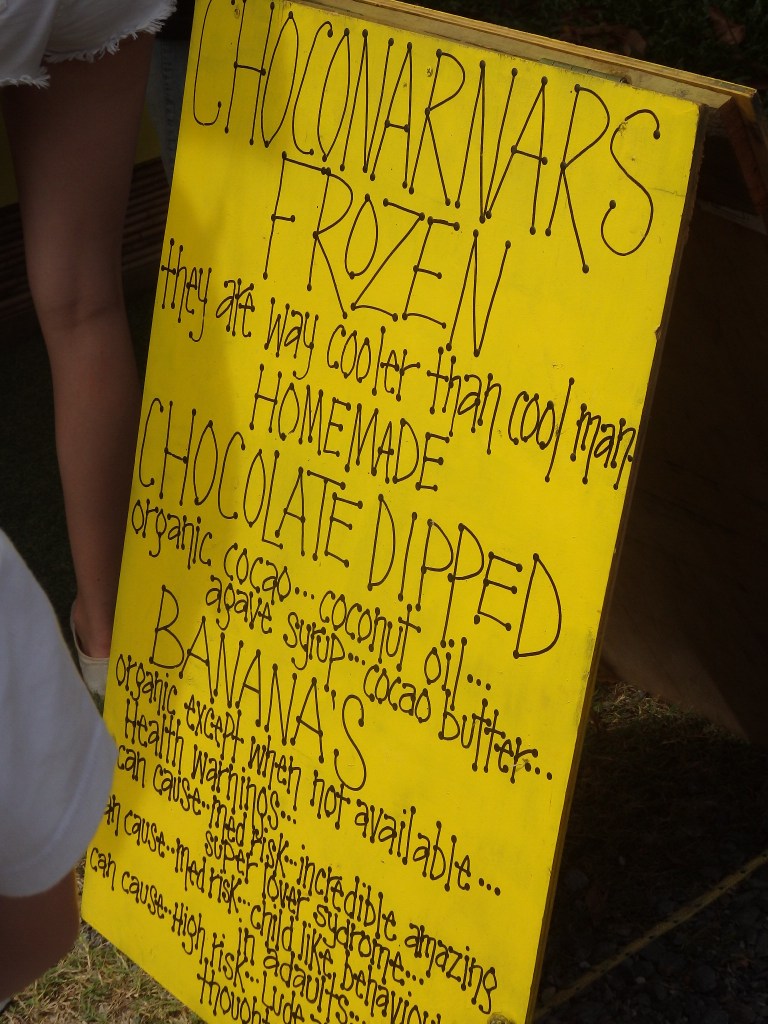 CHOCONARNARS
FROZEN
they are way cooler than cool man
HOMEMADE
CHOCOLATE DIPPED
organic cocao... coconut oil...
agave syrup... cocao butter...
BANANA'S
organic except when not available...
Health warnings...
can cause..med risk..incredible amazing
super lover sydrome...
an cause..med risk... child like behaviour
in adaults...
can cause..High risk... Lude
thought